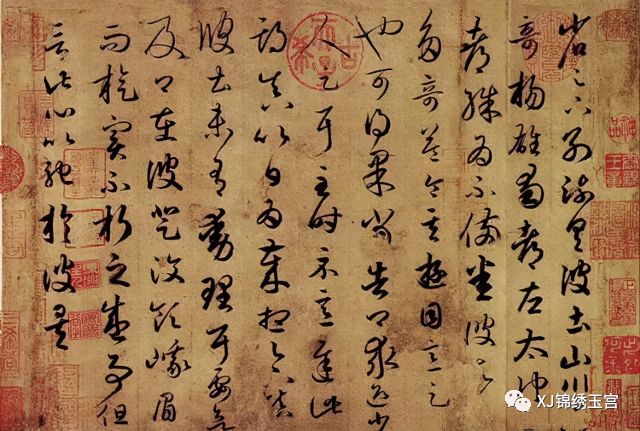 省足下別疏具彼土山川
奇揚雄蜀都左太沖
都殊為不備悉彼故
多奇益令其遊目意足
也可得果當告卿求迎少
人足耳至時示意遲此
期真以日為歲想足下鎮
彼土未有動理耳要欲
及卿在彼登汶領峨眉
而旋實不朽之盛事但
言此心以馳於彼矣
XJ锦绣玉宫